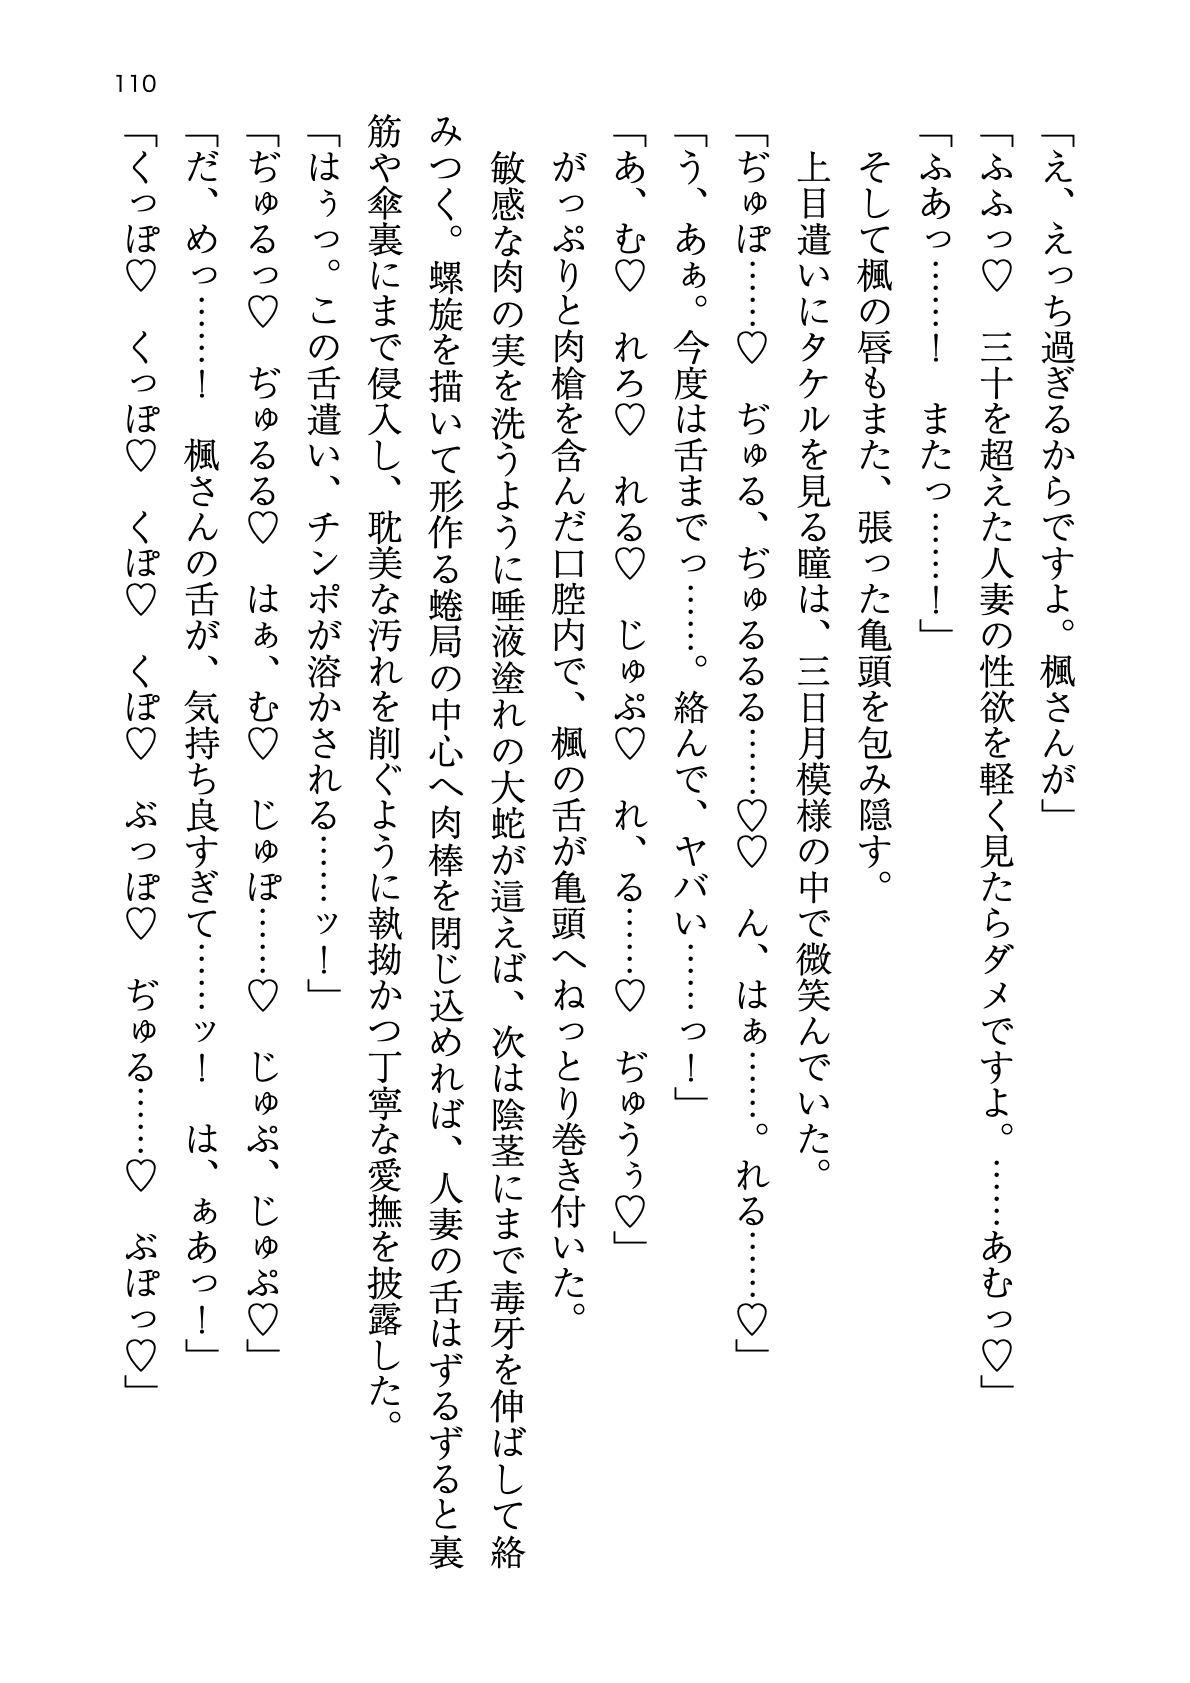 110
「え、えっち過ぎるからですよ。楓さんが」
「ふふっ♡　三十を超えた人妻の性欲を軽く見たらダメですよ。……あむっ♡」
「ふあっ……！　またっ……！」
そして楓の唇もまた、張った亀頭を包み隠す。
上目遣いにタケルを見る瞳は、三日月模様の中で微笑んでいた。
「ぢゅぽ……♡　ぢゅる、ぢゅるるる……♡♡　ん、はぁ……。れる……♡」
「う、あぁ。今度は舌までっ……。絡んで、ヤバい……っ！」
「あ、む♡　れろ♡　れる♡　じゅぷ♡　れ、る……♡　ぢゅうぅ♡」
がっぷりと肉槍を含んだ口腔内で、楓の舌が亀頭へねっとり巻き付いた。
敏感な肉の実を洗うように唾液塗れの大蛇が這えば、次は陰茎にまで毒牙を伸ばして絡
みつく。螺旋を描いて形作る蜷局の中心へ肉棒を閉じ込めれば、人妻の舌はずるずると裏
筋や傘裏にまで侵入し、耽美な汚れを削ぐように執拗かつ丁寧な愛撫を披露した。
「はぅっ。この舌遣い、チンポが溶かされる……ッ！」
「ぢゅるっ♡　ぢゅるる♡　はぁ、む♡　じゅぽ……♡　じゅぷ、じゅぷ♡」
「だ、めっ……！　楓さんの舌が、気持ち良すぎて……ッ！　は、ぁあっ！」
「くっぽ♡　くっぽ♡　くぽ♡　くぽ♡　ぶっぽ♡　ぢゅる……♡　ぶぽっ♡」